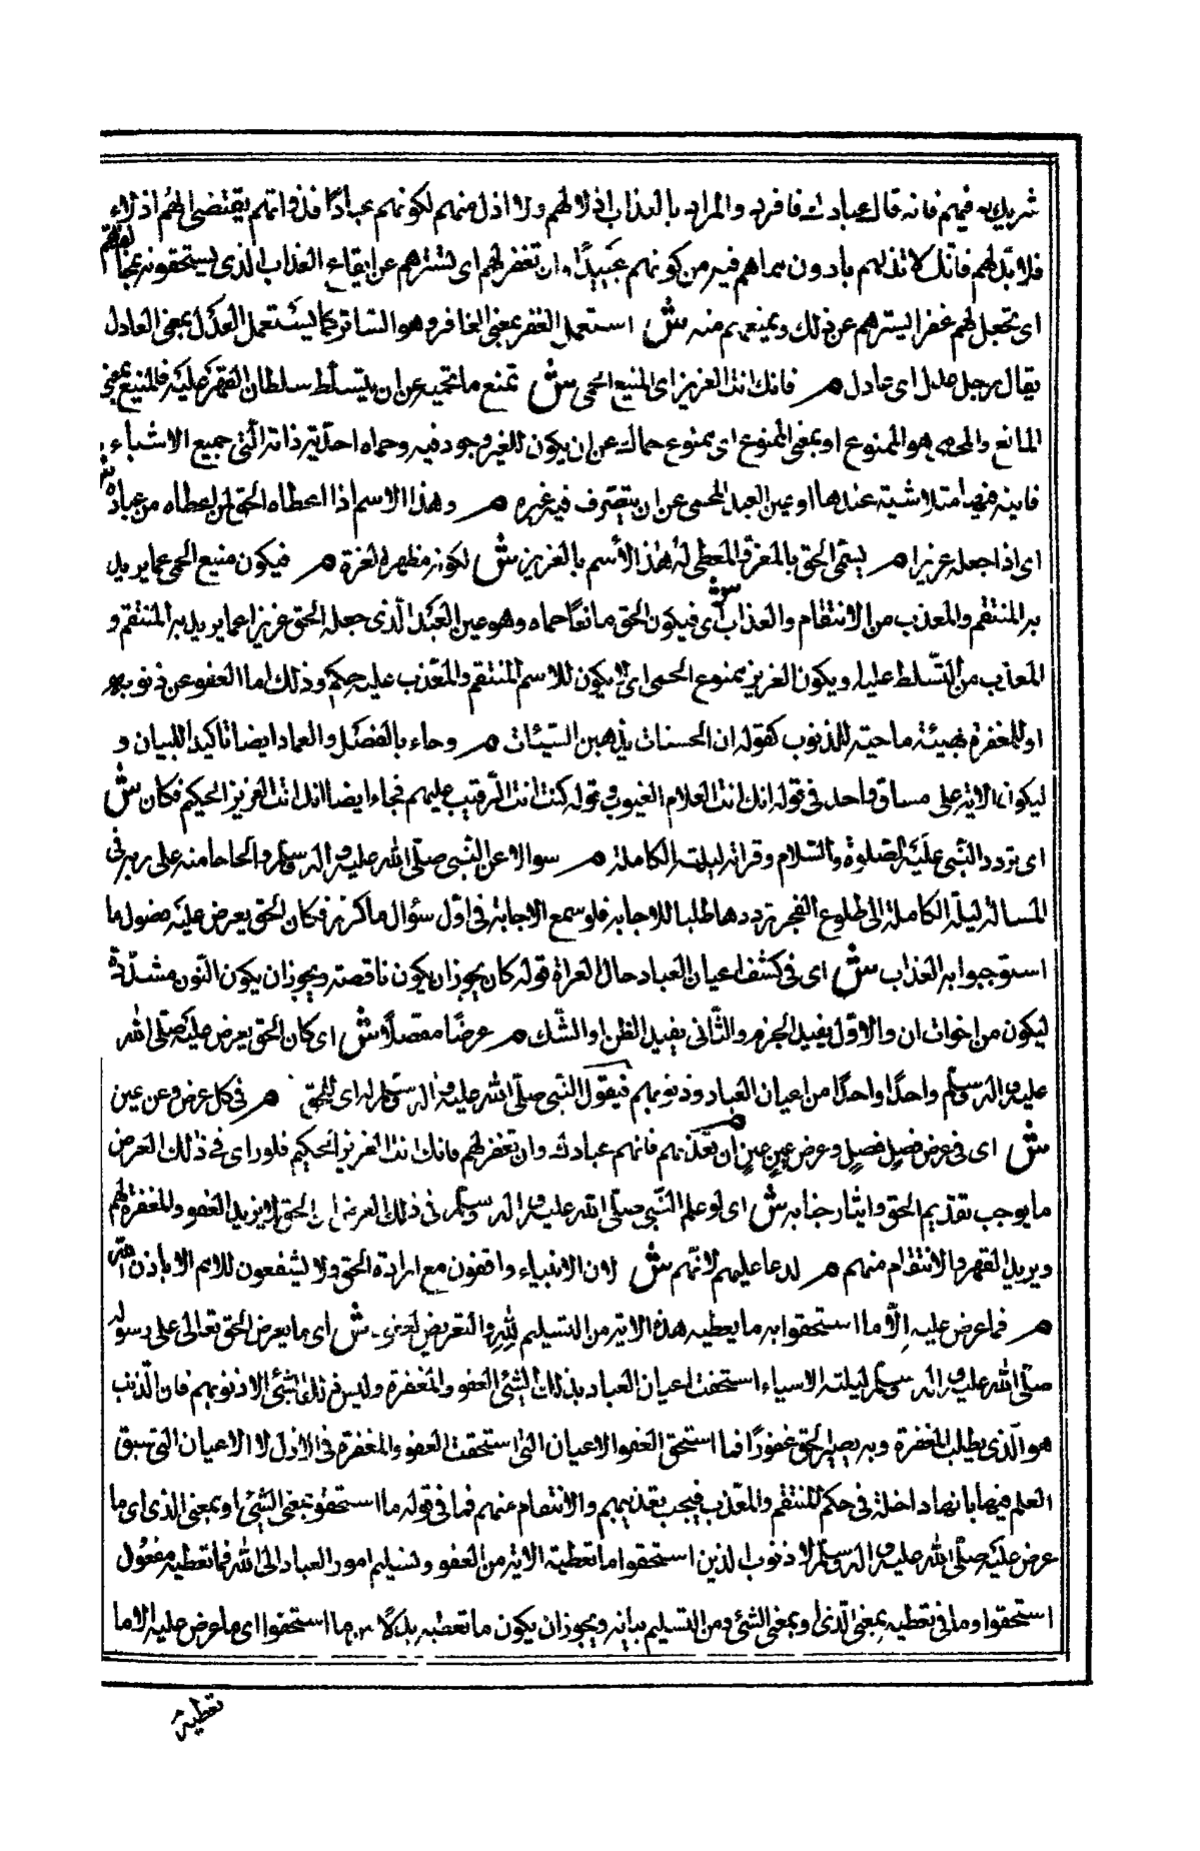 شريك له فيهم فانه قال عبادك فافرد والمراد بالعذاب اذلالهم ولا اذل منهم لكونهم عبادًا فذواتهم يقتضى انهم اذلاء
فلا تذلهم فانك لا تذلهم بادون مما هم فيه من كونهم عبيدًا وان تغفر لهم اى تسترهم عن ايقاع العذاب الذى يستحقونه بمخالفتهم
اى تجعل لهم غفرا يسترهم عن ذلك ويمنعهم منه ش استعمل الغفر بمعنى الغافر وهو الساتر كما يستعمل العدل بمعنى العادل
يقال رجل عدل اى عادل م فانك انت العزيز اى المنيع الحمى ش تمنع ما تحميه عن ان يتسلط سلطان القهر عليه فالمنيع بمعنى
المانع والحمى هو الممنوع او بمعنى الممنوع اى ممنوع حماك عن ان يكون للغير وجود فيه وحماه احدية ذاته التى جميع الاشياء
فانية فيها متلاشية عندها او عين العبد المحمى عن ان يتصرف فيه غيره م وهذا الاسم اذا اعطاه الحق لمن اعطاه من عباده ش
اى اذا جعله عزيزا م يسمى الحق بالمعز والمعطى له هذا الأسم بالعزيز ش لكونه مظهر العزة م فيكون منيع الحمى عما يريد
به المنتقم والمعذب من الانتقام والعذاب ش اى فيكون الحق مانعًا حماه وهو عين العبد الذى جعله الحق عزيزا عما يريد به المنتقم و
المعذب من التسلط عليه ويكون العزيز ممنوع الحمى اى لا يكون للاسم المنتقم والمعذب عليه حكم وذلك اما العفو عن ذنوبهم
او للمغفرة بهيئة ماحية للذنوب كقوله ان الحسنات يذهبن السيئات م وجاء بالفصل والعماد ايضا تاكيدا للبيان و
ليكون الاية على مساق واحد فى قوله انك انت العلام الغيوب وقوله كنت انت الرقيب عليهم فجاء ايضا انك انت العزيز الحكيم فكان ش
اى تردد النبى عليه الصلوة والسلام وقراته ليلته الكاملة م سوالا عن النبى صلى الله عليه واله وسلم والحاحا منه على ربه فى
المسالة ليلته الكاملة الى طلوع الفجر يرددها طلبا للاجابة فلو سمع الاجابة فى اول سؤال ما كرر فكان الحق يعرض عليه فصول ما
استوجبوا به العذاب ش اى فى كشف اعيان العباد حال القراة قوله كان يجوز ان يكون ناقصة ويجوز ان يكون النون مشددة
ليكون من اخوات ان والاول يفيد الجزم والثانى يفيد الظن او الشك م عرضًا مفصلًا ش اى كان الحق يعرض عليه صلى الله
عليه واله وسلم واحدًا واحدًا من اعيان العباد وذنوبهم فيقول النبى صلى الله عليه واله وسلم له اى للحق م فى كل عرض وعن عين
ش اى فى عرض فصل فصل وعرض عينٍ عينٍ م ان تعذبهم فانهم عبادك وان تغفر لهم فانك انت العزيز الحكيم فلو راى فى ذلك العرض
ما يوجب تقديم الحق وايثار جنابه ش اى لو علم النبى صلى الله عليه واله وسلم فى ذلك العرض ان الحق لا يريد العفو والمغفرة لهم
ويريد القهر والانتقام منهم م لدعا عليهم لا لهم ش لان الانبياء واقفون مع ارادة الحق ولا يشفعون للامم الا باذن الله
م فما عرض عليه الا ما استحقوا به ما يعطيه هذه الاية من التسليم لله والتعريض لعفوه ش اى ما يعرض الحق تعالى على رسوله
صلى الله عليه واله وسلم ليلته الاسياء استحقت اعيان العباد بذلك الشئ العفو والمغفرة وليس ذلك الشئ الا ذنوبهم فان الذنب
هو الذى يطلب المغفرة وبه يصير الحق غفورًا فما استحق العفو الا الاعيان التى استحقت العفو والمغفرة فى الازل لا الاعيان التى سبق
العلم فيها بانها داخلة فى حكم المنتقم والمعذب فيجب تعذيبهم والانتقام منهم فما فى قوله ما استحقوا بمعنى الشئ او بمعنى الذى اى ما
عرض عليه صلى الله عليه واله وسلم الا ذنوب الذين استحقوا ما تعطيه الاية من العفو وتسليم امور العباد الى الله فما تعطيه مفعول
استحقوا وما فى تعطيه بمعنى الذى او بمعنى الشئ ومن التسليم بيانه ويجوز ان يكون ما تعطيه بدلًا من ما استحقوا اى ما عرض عليه الا ما
تعطيه